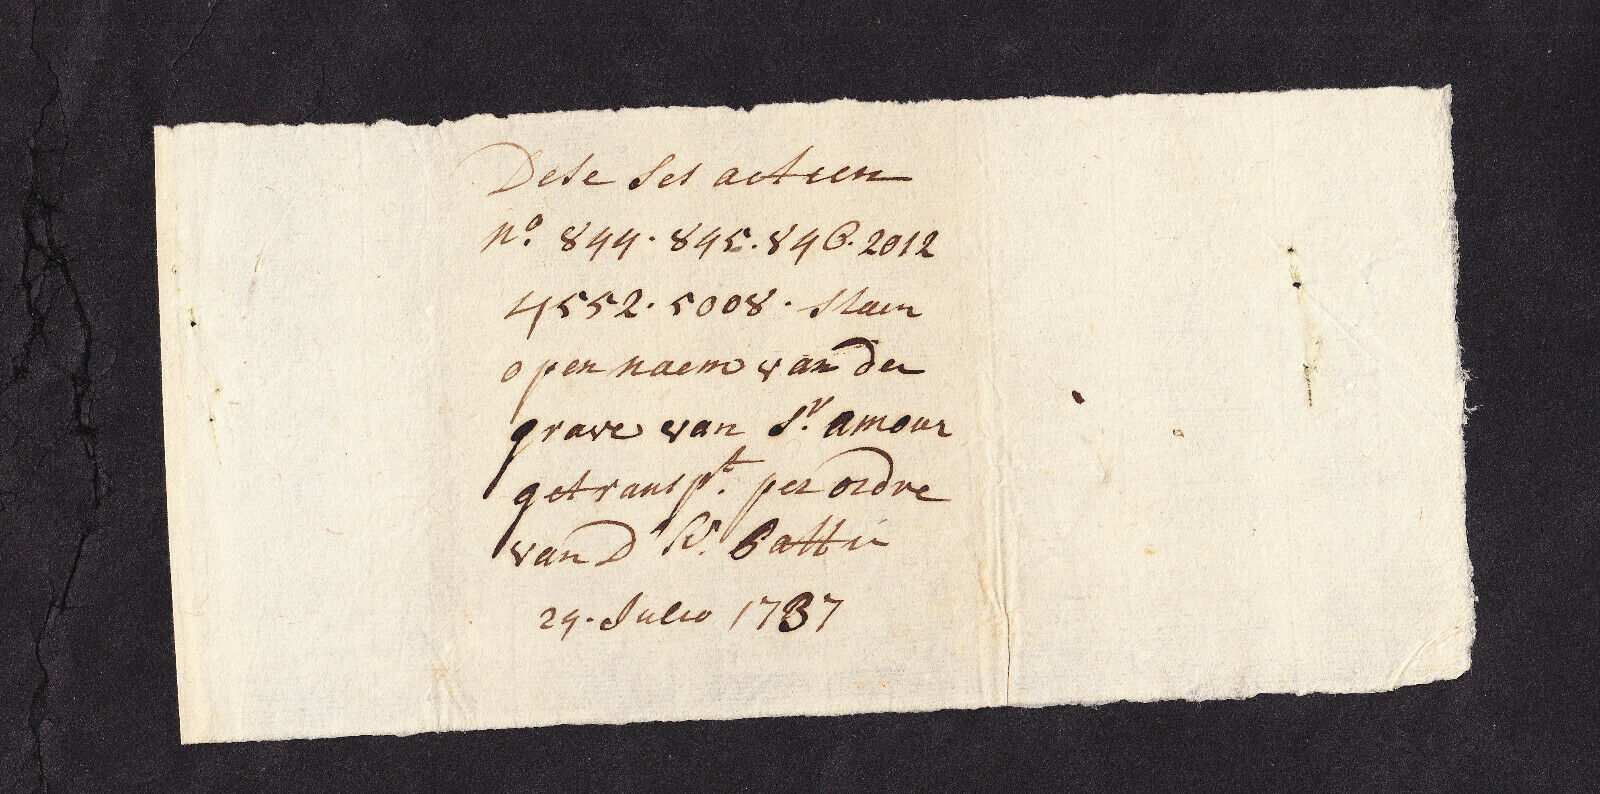 Dese ses actien
no. 844. 845. 846. 2012
4552. 5008. staen
open naem van der
grave van St. amour
getranspt. per ordre
van D
29. Julio 1737